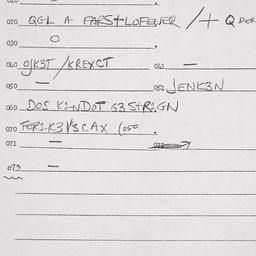 020 QGL A FARST LOFEQVER /+ Q DER
030 O .
040 OJK3T /KREXCT 041 —
050 — 051 JENK3N
060 DOS K1NDOT G3 STR1GN
070 FER1K3 V3CAX (050 .
071 —
073 —